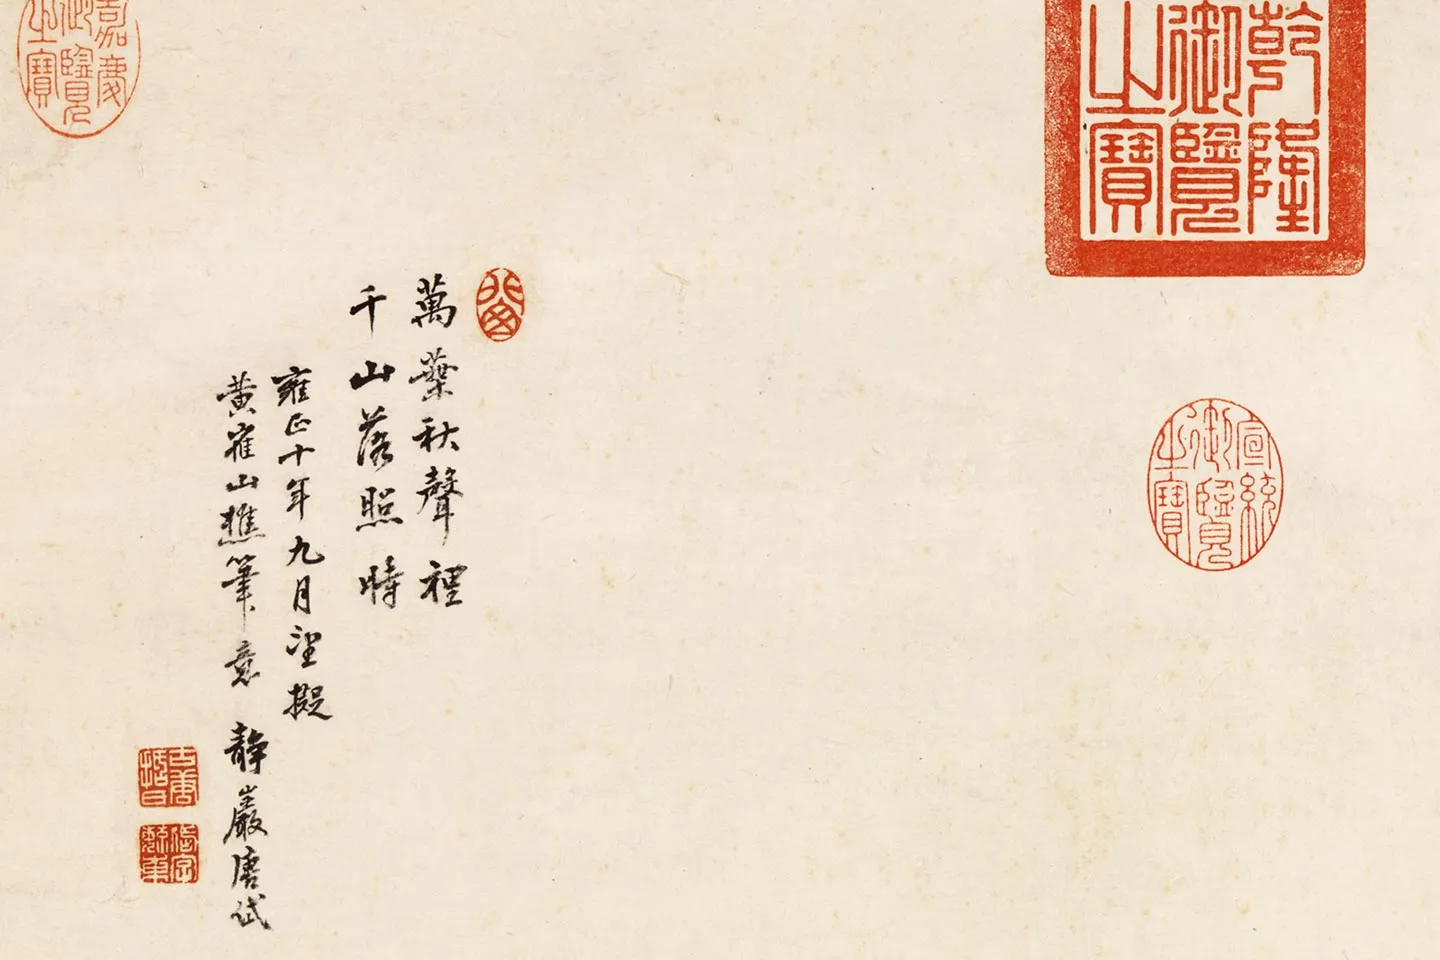 乾隆御覽之寶
宣統御覽之寶
萬葉秋聲裡
千山落照時
雍正十年九月望擬
黃崔山樵筆意 靜巖唐岱
嘉慶御覽之寶